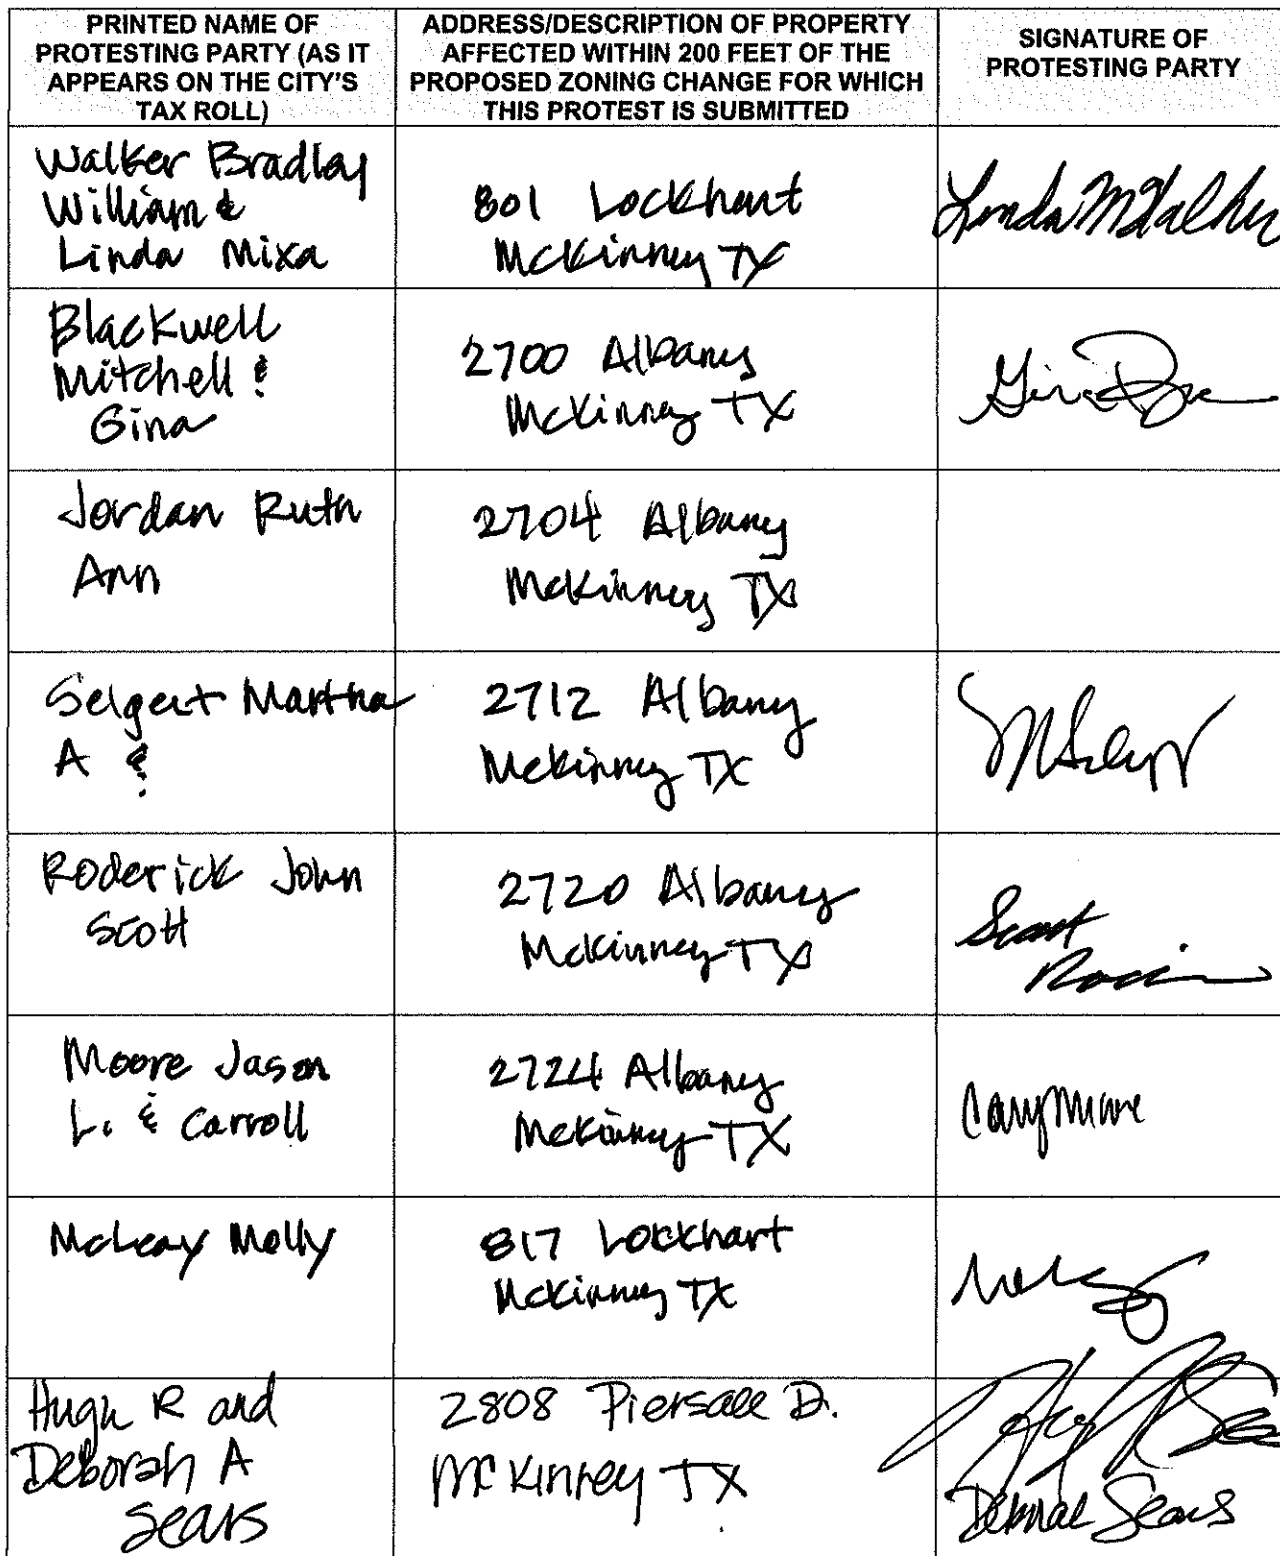 PRINTED NAME OF
PROTESTING PARTY (AS IT
APPEARS ON THE CITY'S
TAX ROLL)
ADDRESS/DESCRIPTION OF PROPERTY
AFFECTED WITHIN 200 FEET OF THE
PROPOSED ZONING CHANGE FOR WHICH
THIS PROTEST IS SUBMITTED
SIGNATURE OF
PROTESTING PARTY
Walker Bradley
William &
Linda Mixa
801 Lockhart
McKinney TX
Linda M Walker
Blackwell
Mitchell &
Gina
2700 Albany
McKinney TX
Gina
Jordan Ruth
Ann
2704 Albany
McKinney TX
Selgert Martha
A &
2712 Albany
McKinney TX
Roderick John
Scott
2720 Albany
McKinney TX
Scott
Moore Jason
L. & Carroll
2724 Albany
McKinney TX
Cary Moore
McLeay Molly
817 Lockhart
McKinney TX
Hugh R and
Deborah A
Sears
2808 Piersall D.
McKinney TX
Deborah Sears